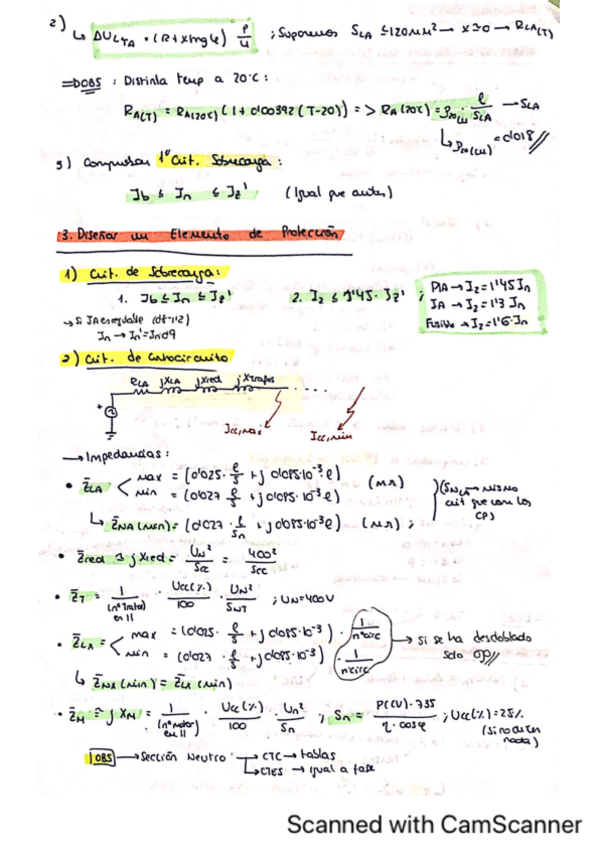 2) ↳ ΔU LTA = (R + X tng φ) P/U ; Suponemos SLA ≤ 120mm² → X≃0 → RLA(T)
⇒ OBS : Distinta temp a 20°C :
RA(T) = RA(20°C) (1 + 0'00392 (T-20)) => RA(20°C) = ρ20(Cu) · ℓ/SLA → SLA
↳ ρ20(Cu) = 0'018 //
3) Comprobar 1º Crit. Sobrecarga :
Ib ≤ In ≤ Iz' (Igual que antes)
3. Diseñar un Elemento de Protección
1) Crit. de Sobrecarga :
1. Ib ≤ In ≤ Iz' 2. I2 ≤ 1'45 · Iz' ;
PIA → I2 = 1'45 In
IA → I2 = 1'3 In
Fusible → I2 = 1'6 · In
→ Si IA es regulable
In → In' = In·0'9
2) Crit. de Cortocircuito
RLA jXLA jXred jXtrafos ....
Icc,max Icc,min
→ Impedancias :
• Z̄LA < max = (0'025 · ℓ/S + j 0'085·10⁻³ ℓ) (mΩ)
min = (0'027 ℓ/S + j 0'085·10⁻³ ℓ)
↳ Z̄NA (min) = (0'027 · ℓ/Sn + j 0'085·10⁻³ ℓ) (mΩ) ;
• Z̄red ≃ jXred = UN²/Scc = 400²/Scc
• Z̄T = 1/(nº Trafos en //) · Ucc(%)/100 · UN²/SNT ; UN = 400V
• Z̄LX = < max = (0'025 · ℓ/S + j 0'085·10⁻³) · 1/nºcirc
min = (0'027 ℓ/S + j 0'085·10⁻³) · 1/nºcirc
→ Si se ha desdoblado
↳ Z̄NX (min) = Z̄LX (min)
• Z̄M ≃ jXM = 1/(nº motor en //) · Ucc(%)/100 · Un²/Sn ; Sn = P(CV) · 735/η · cosφ ; Ucc(%) = 25% (Si no dicen nada)
OBS → Sección Neutro → CTC → tablas
↳ CTES → Igual a fase
Scanned with CamScanner